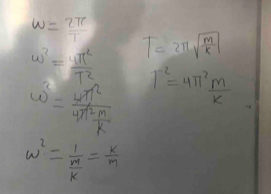 ω = 2π/T
ω² = 4π²/T²
ω² = 4π²/4π² m/K
ω² = 1/m/K = K/m
T = 2π √m/K
T² = 4π² m/K